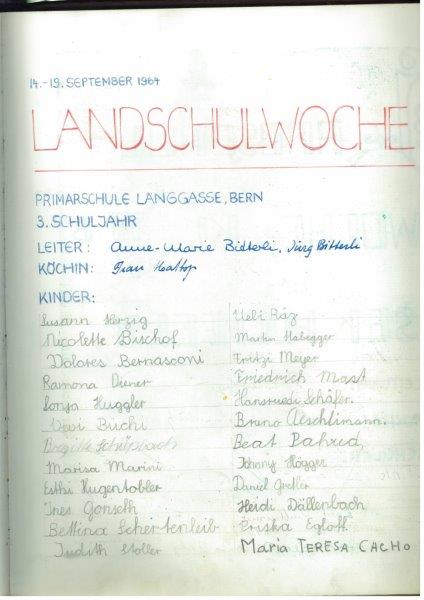 14.-19. SEPTEMBER 1964
LANDSCHULWOCHE
PRIMARSCHULE LANGGASSE, BERN
3. SCHULJAHR
LEITER: Anne-Marie Bitterli, Jürg Bitterli
KÖCHIN: Frau
KINDER:
Susann Herzig
Nicolette Bischof
Dolores Bernasconi
Ramona Diener
Sonja Huggler
Büchi
Brigitte Schüpbach
Marisa Marini
Esthi Hugentobler
Ines Gonseth
Bettina Schertenleib
Judith Stoller
Ueli Räz
Martin Habegger
Fritzi Meyer
Friedrich Mast
Hansruedi Schäfer.
Bruno Aeschlimann.
Beat Bahred
Johnny Högger
Daniel
Heidi Dällenbach
Priska Egloff
MARIA TERESA CACHO